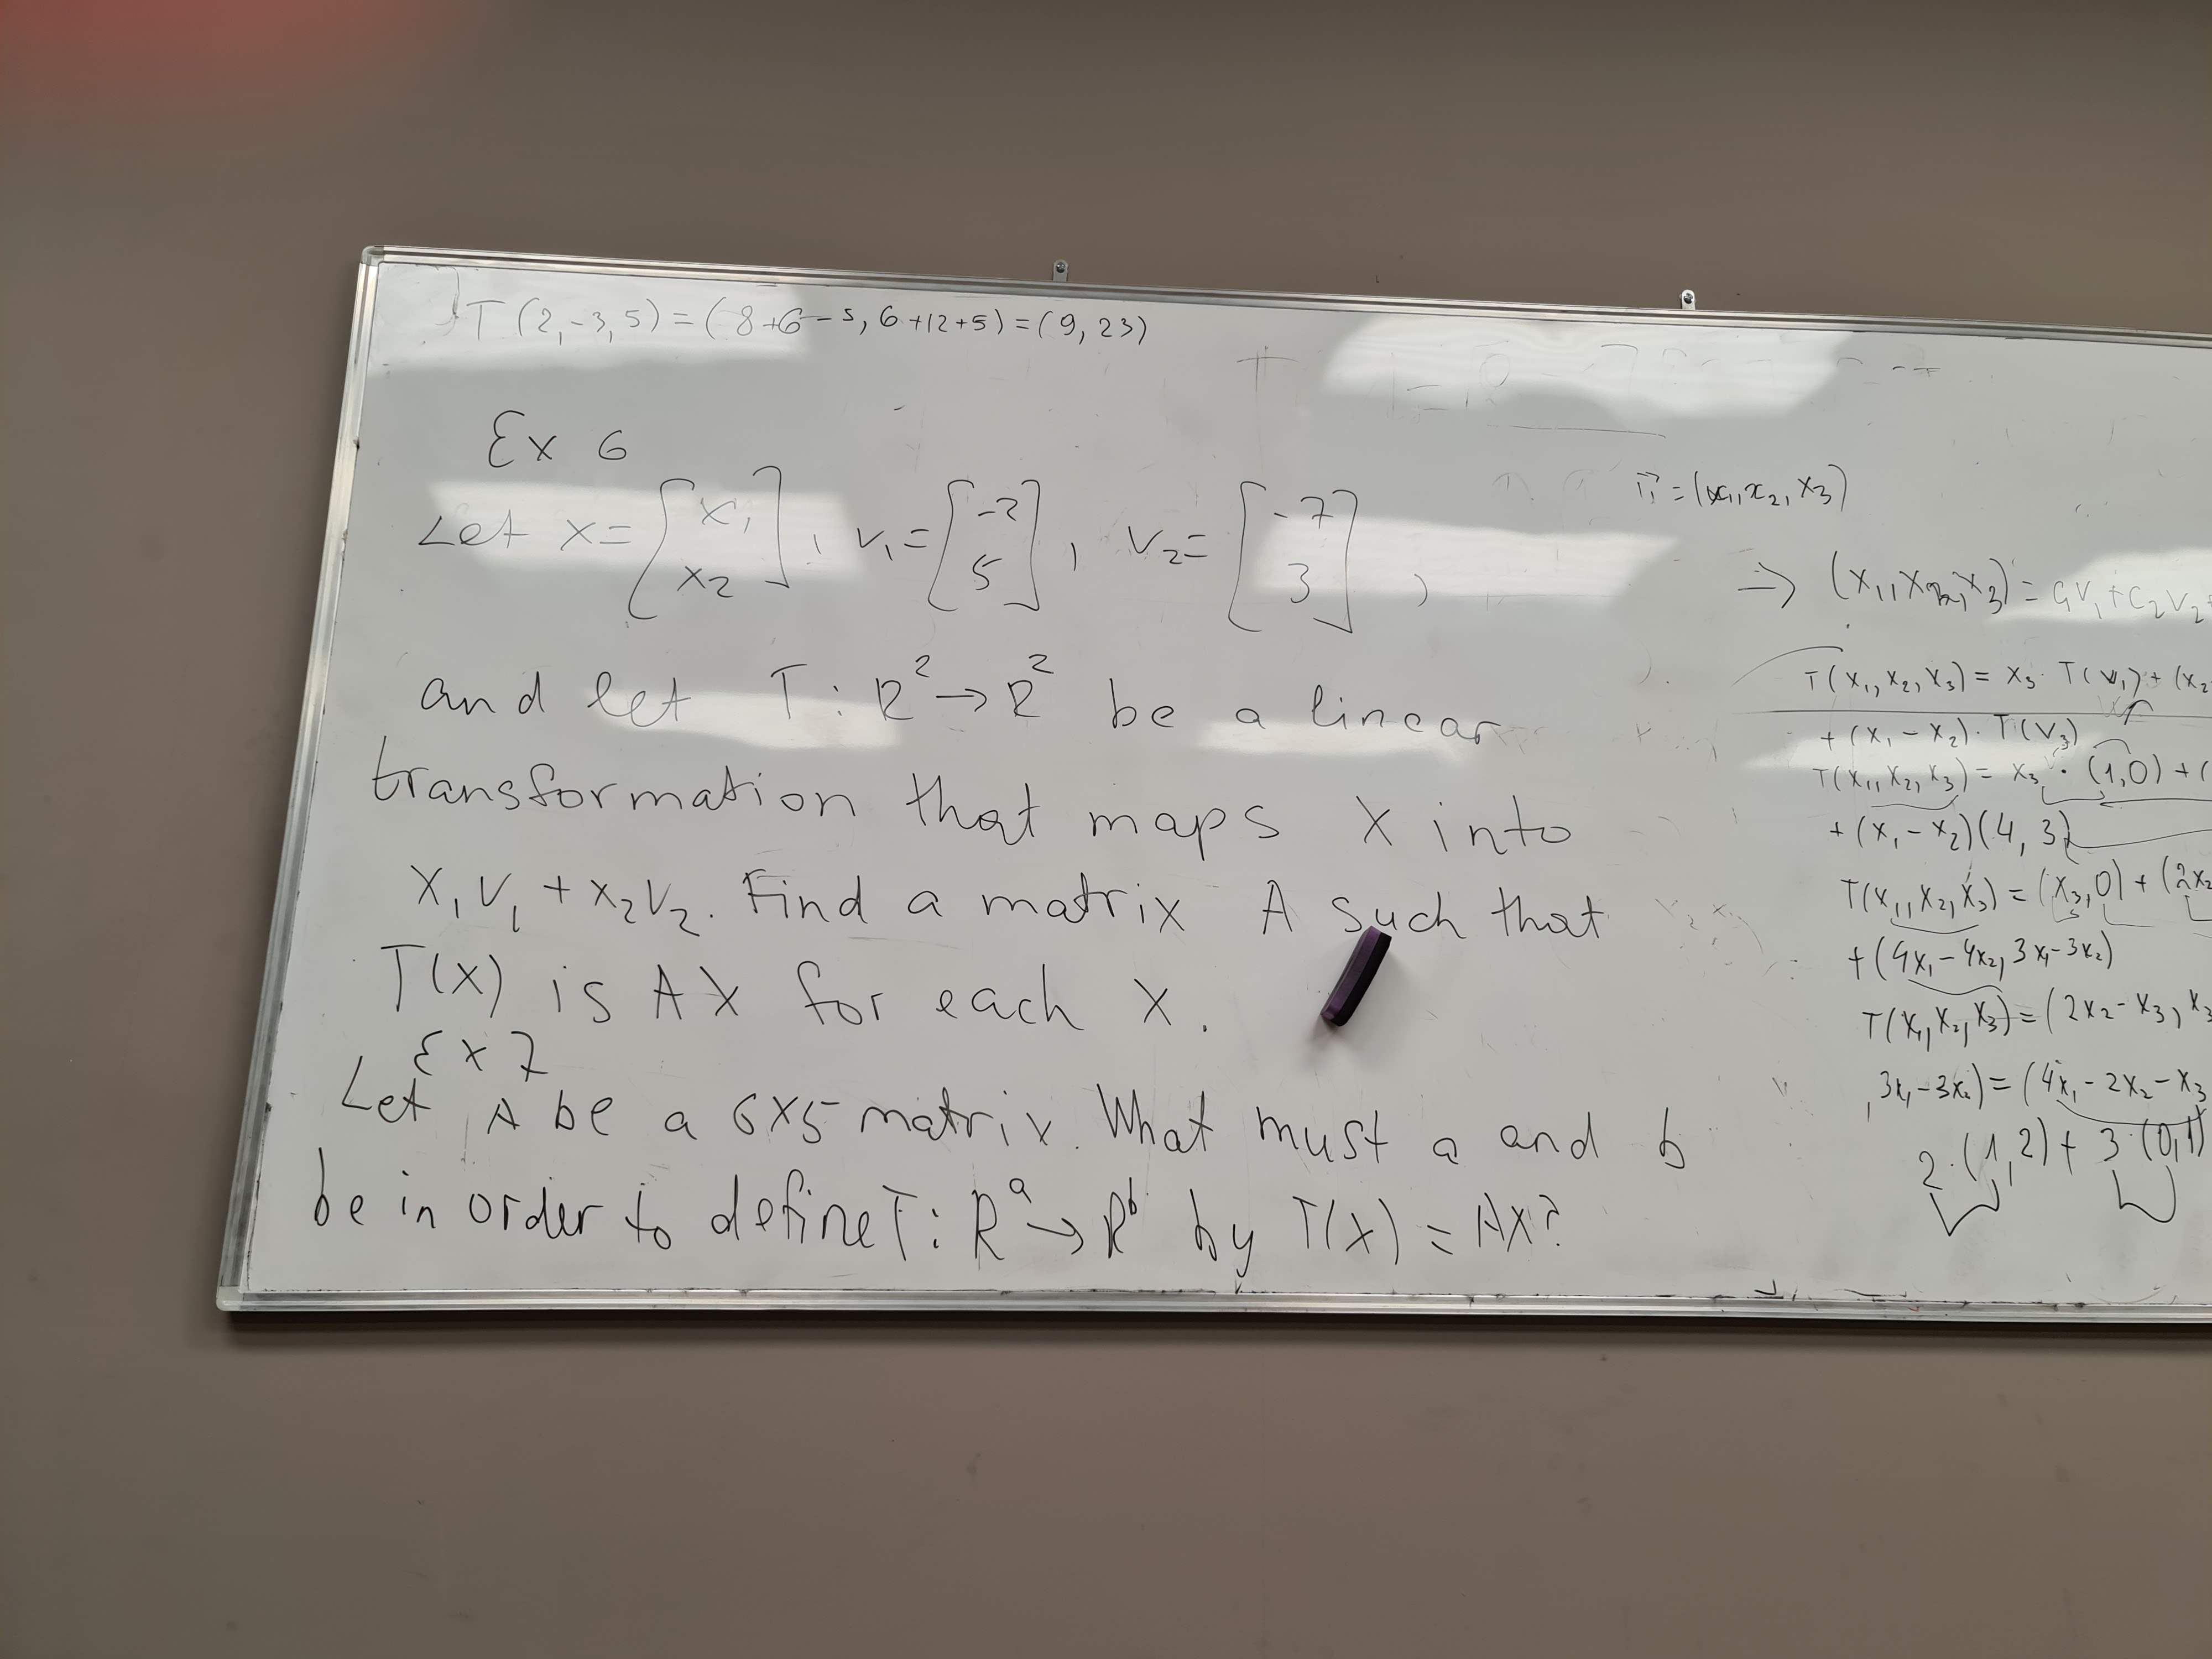 T(2,-3,5) = (8+6-5, 6+12+5) = (9, 23)
Ex 6
Let x = [x₁ x₂], v₁ = [-2 5], v₂ = [-7 3],
and let T: R² → R² be a linear
transformation that maps x into
x₁v₁ + x₂v₂. Find a matrix A such that
T(x) is Ax for each x.
Ex 7
Let A be a 6x5 matrix. What must a and b
be in order to define T: Rᵃ → Rᵇ by T(x) = Ax?
= (x₁, x₂, x₃)
⇒ (x₁, x₂, x₃) = c₁v₁ + c₂v₂
T(x₁, x₂, x₃) = x₃ · T(v₁) + (x₂
+ (x₁ - x₂) · T(v₃)
T(x₁, x₂, x₃) = x₃ · (1,0) + (
+ (x₁ - x₂)(4, 3)
T(x₁, x₂, x₃) = (x₃, 0) + (2x₂
+ (4x₁ - 4x₂, 3x₁ - 3x₂)
T(x₁, x₂, x₃) = (2x₂ - x₃, x₃
, 3x₁ - 3x₂) = (4x₁ - 2x₂ - x₃
2·(1,2) + 3·(0,1)